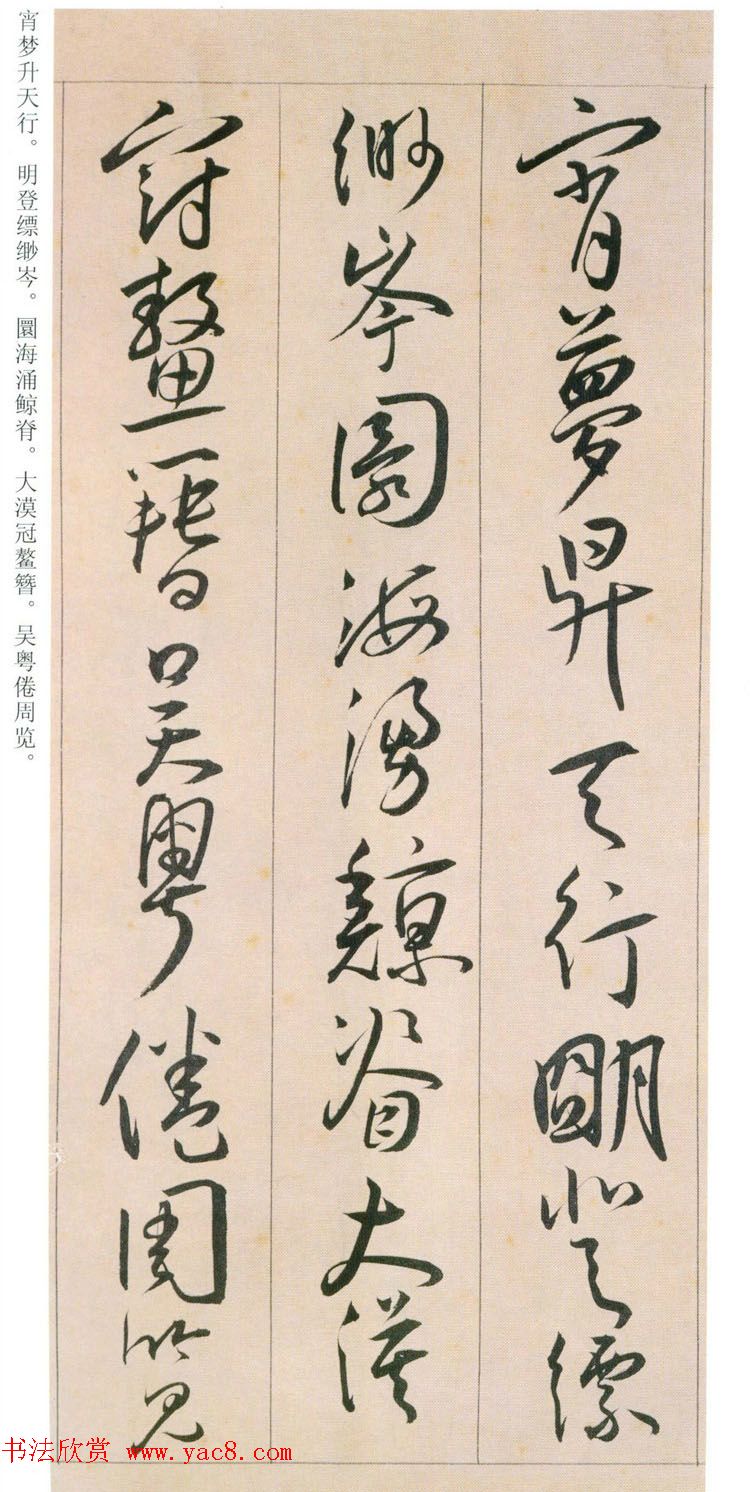 宵夢昇天行明登縹
緲岑圜海湧鯨脊大漠
冠鼇簪吳粵倦周覽
宵梦升天行。明登缥缈岑。圜海涌鲸脊。大漠冠鳌簪。吴粤倦周览。
书法欣赏 www.yac8.com